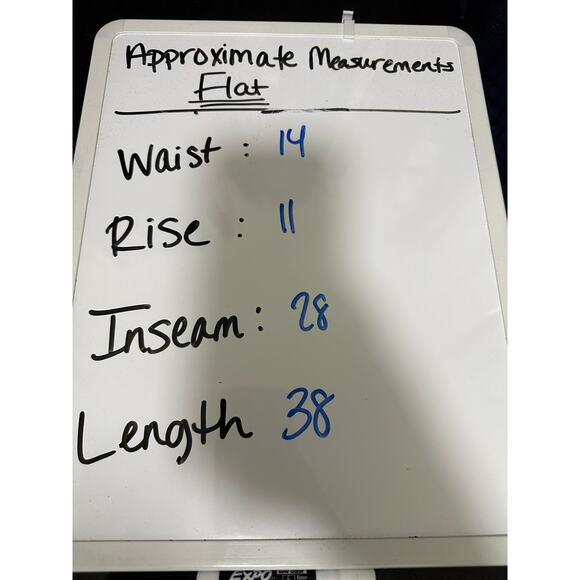 Approximate Measurements
Flat
Waist : 14
Rise : 11
Inseam : 28
Length 38
EXPO